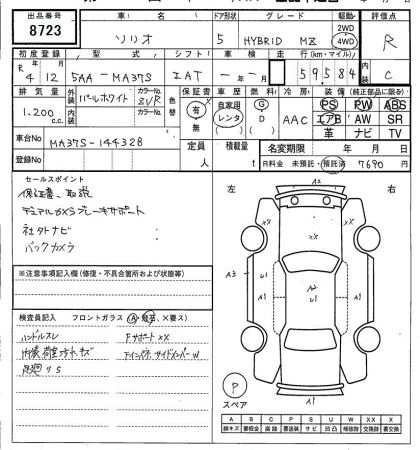 出品番号 車名 ドア形状 グレード 駆動 評価点
8723 ソリオ 5 HYBRID MX 2WD 4WD R
初度登録 型式 シフト 車検 走行(km・マイル) 内装
R4年12月 5AA-MA37S IAT 年 月 59584 C
排気量 外装 カラーNo. 色替 保証書 車歴 燃料 冷房 装備(純正部品に限る)
1.200 c.c. パールホワイト ZVR 有 無 自家用 レンタ G D AAC PS PW ABS
エアB AW SR
革 ナビ TV
車台No MA37S-144328 定員 人 積載量 t 名変期限 年 月 日
登録No R料金 未預託・預託済 7690 円
セールスポイント
保証書、取説
デュアルカメラブレーキサポート
社外ナビ
バックカメラ
※注意事項記入欄(修復・不具合箇所および状態等)
検査員記入 フロントガラス
ハンドルスレ FサポートXX
内張荷室 キズ
足廻りS
左 右
A2
XX XX
A3 U1 U1
A1 A2 A1
A1
P
スペア
A B C P S U W X XX
線キズ 要板金 腐食 要塗装 サビ 凹凸 補修跡 交換跡